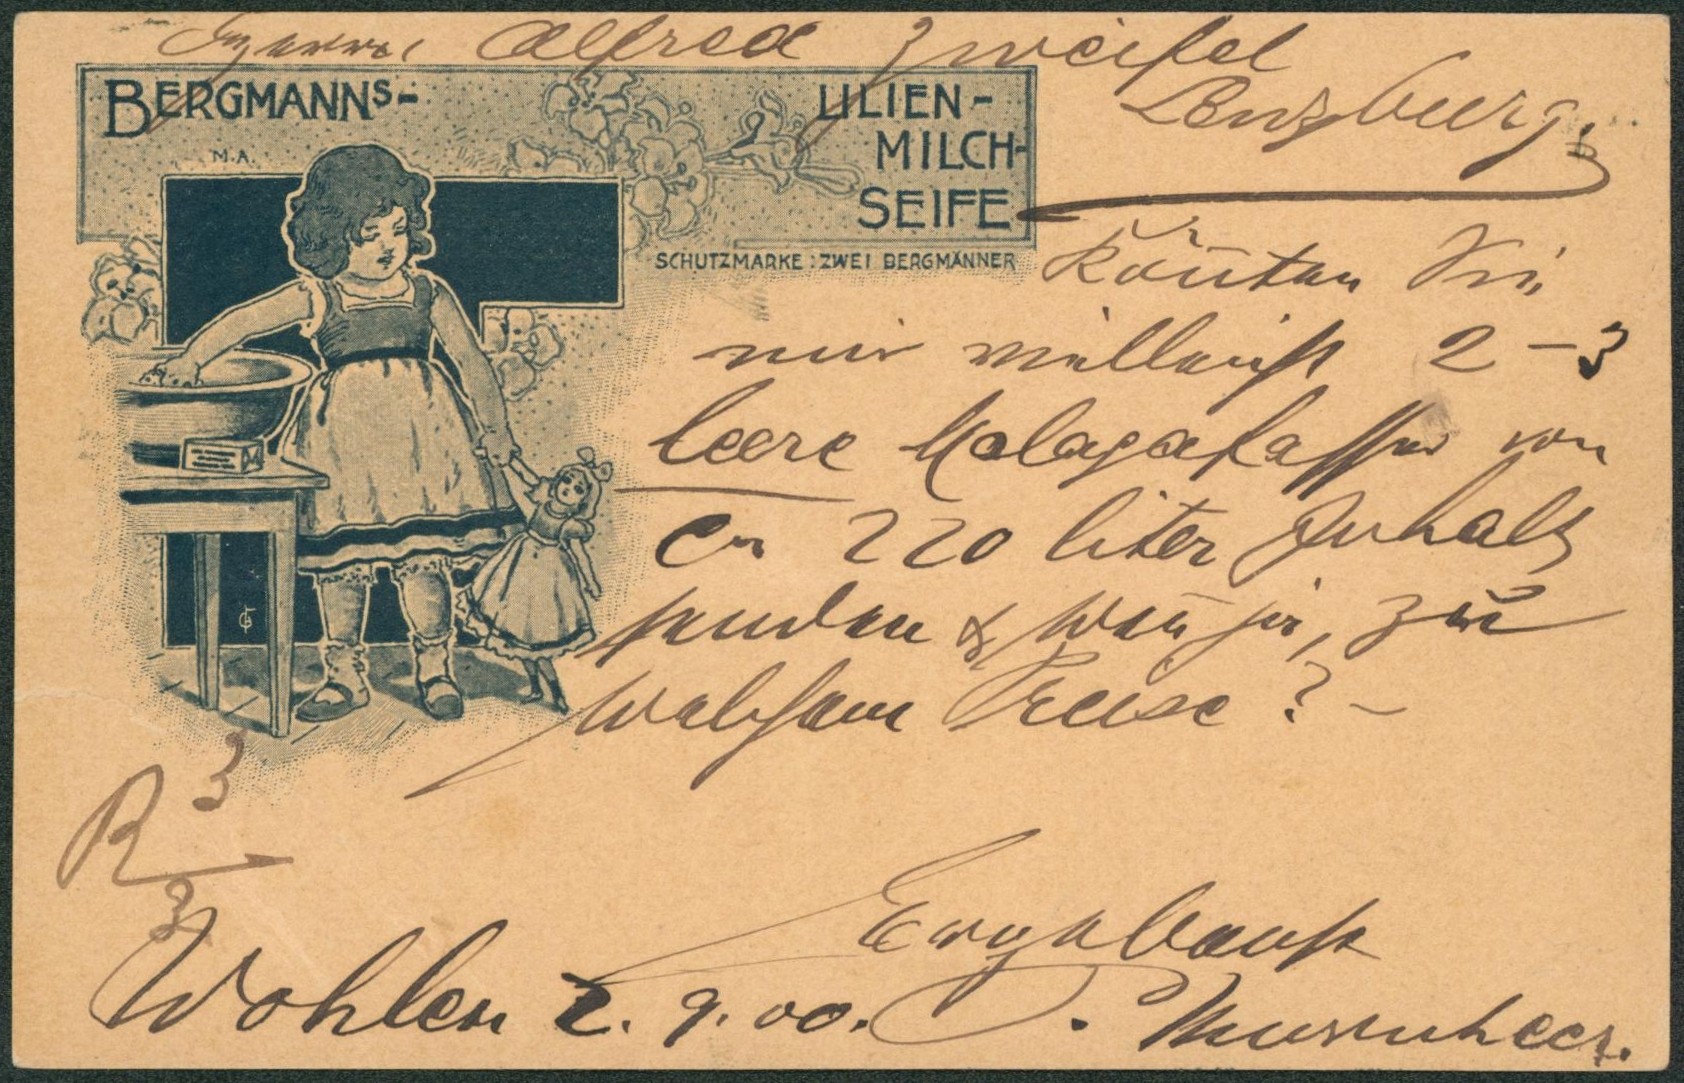 Herrn Alfred Zweifel
Lenzburg.
BERGMANNS-
LILIEN-
MILCH-
SEIFE
M.A.
SCHUTZMARKE: ZWEI BERGMÄNNER
Könten Sie
mir vielleicht 2-3
leere Malagafasser von
ca 220 liter Inhalt
senden & wen ja, zu
welchem Preise? -
R 3/3
Ergebenst
Wohlen 2. 9. 00.